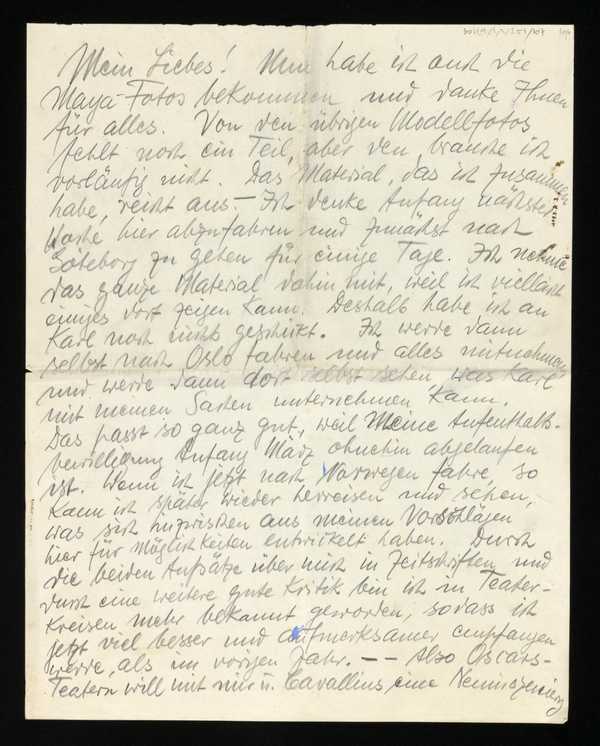 Mein Liebes! Nun habe ich auch die
Maya-Fotos bekommen und danke Ihnen
für alles. Von den übrigen Modellfotos
fehlt noch ein Teil, aber den brauche ich
vorläufig nicht. Das Material, das ich zusammen
habe, reicht aus – Ich denke Anfang nächster
Woche hier abzufahren und zunächst nach
Göteborg zu gehen für einige Tage. Ich nehme
das ganze Material dahin mit, weil ich vielleicht
einiges dort zeigen kann. Deshalb habe ich an
Karl noch nichts geschickt. Ich werde dann
selbst nach Oslo fahren und alles mitnehmen
und werde dann dort selbst sehen was Karl
mit meinen Sachen unternehmen kann.
Das passt so ganz gut, weil meine Aufenthalts-
bewilligung Anfang März ohnehin abgelaufen
ist. Wenn ich jetzt nach Norwegen fahre, so
kann ich später wieder herreisen und sehen,
was sich inzwischen aus meinen Vorschlägen
hier für Möglichkeiten entwickelt haben. Durch
die beiden Aufsätze über mich in Zeitschriften und
durch eine weitere gute Kritik bin ich in Teater-
kreisen mehr bekannt geworden, sodass ich
jetzt viel besser und aufmerksamer empfangen
werde, als im vorigen Jahr. – – Also Oscars-
Teatern will mit mir u. Cavallius eine Neuinszenierg